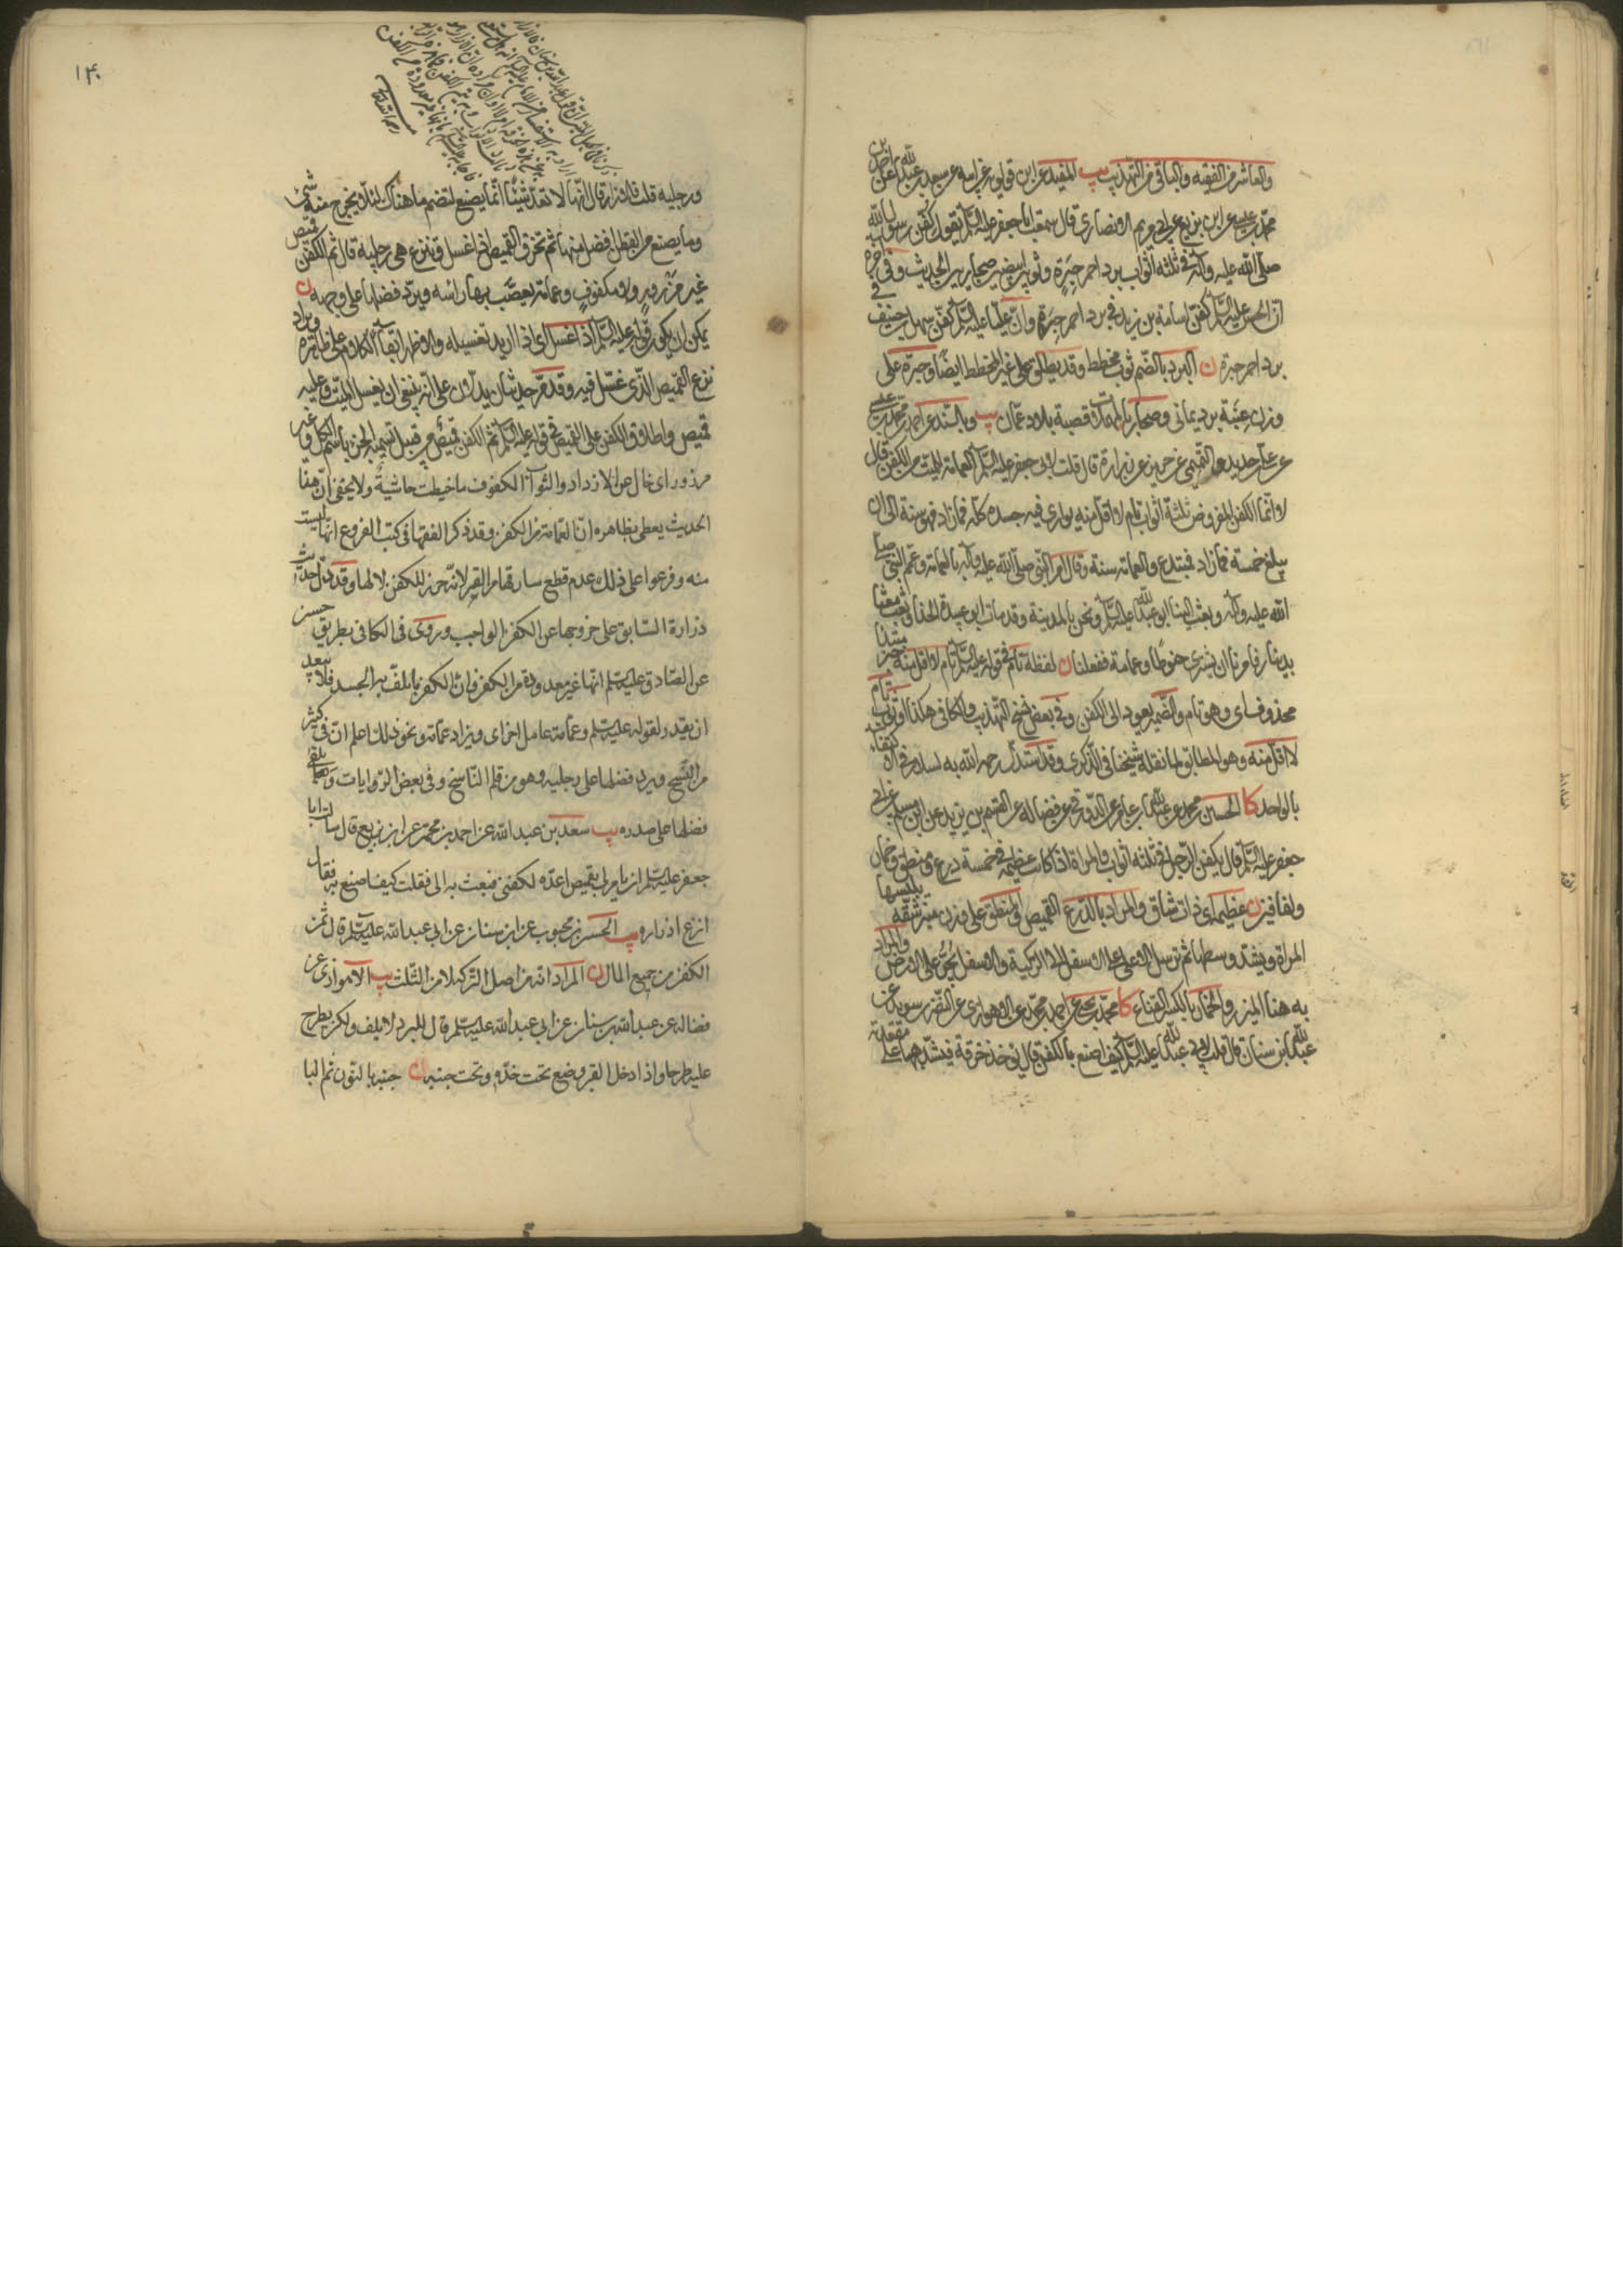 والعاشر من الفقيه والباقي من التهذيب يب المفيد عن ابن قولويه عن ابيه عن سعد بن عبدالله عن احمد بن
محمد بن عيسى عن ابن بزيع عن ابي مريم الانصاري قال سمعت ابا جعفر عليه السلم يقول كفن رسول الله
صلى الله عليه وآله في ثلثة اثواب برد احمر حبرة وثوبين ابيضين صحاريين الحديث وفي آخره
ان الحسن عليه السلم كفن اسامة بن زيد في برد احمر حبرة وان عليا عليه السلم كفن سهل بن حنيف في
برد احمر حبرة ن البرد بالضم ثوب مخطط وقد يطلق على غير المخطط ايضا وحبرة على
وزن عنبة برد يماني وصحار بالمهملات قصبة بلاد عمان يب وبالسند عن احمد بن محمد عن علي
عن حديد عن التميمي عن حريز عن زرارة قال قلت لابي جعفر عليه السلم العمامة للميت من الكفن قال
لا انما الكفن المفروض ثلثة اثواب تام لا اقل منه يواري فيه جسده كله فما زاد فهو سنة الى ان
يبلغ خمسة فما زاد فمبتدع والعمامة سنة وقال امر النبي صلى الله عليه وآله بالعمامة وعمم النبي صلى
الله عليه وآله وبعث الينا ابو عبدالله عليه السلم ونحن بالمدينة وقد مات ابو عبيدة الحذاء وبعث معنا
بدينار فامرنا ان نشتري حنوطا وعمامة ففعلنا ن لفظة تام في قوله عليه السلم تام لا اقل منه خبر مبتدأ
محذوف اي وهو تام والضمير يعود الى الكفن وفي بعض نسخ التهذيب والكافي هكذا او ثوب تام
لا اقل منه وهو المطابق لما نقله شيخنا في الذكرى وقد استدل رحمه الله به لسلار في الاكتفاء
بالواحد كا الحسين بن محمد عن عبدالله بن عامر عن الدورقي عن فضالة عن القسم بن يزيد عن ابن مسلم عن ابي
جعفر عليه السلم قال يكفن الرجل في ثلثة اثواب والمرأة اذا كانت عظيمة في خمسة درع ومنطق وخمار
ولفافتين ن عظيمة اي ذات شأن والمراد بالدرع القميص والمنطق على وزن منبر شقة يلبسها
المرأة ويشد وسطها ثم ترسل الاعلى على الاسفل الى الركبة والاسفل يجر على الارض والمراد
به هنا الميزر والخمار بالكسر القناع كا محمد بن يحيى عن احمد بن محمد عن الاهوازي عن النضر بن سويد عن
عبدالله بن سنان قال قلت لابي عبدالله عليه السلم كيف اصنع بالكفن قال يؤخذ خرقة فيشد بها على مقعدته
١٤٠
رحمه الله تعالى
ورجليه قلت فالازار قال انها لا تعد شيئا انما يصنع لتضم ما هناك لئلا يخرج منه شئ
وما يصنع من القطن افضل منها ثم تخرق القميص اذا غسل وتنزع من رجليه قال ثم الكفن قميص
غير مزرور ولا مكفوف وعمامة يعصب بها راسه ويرد فضلها على وجهه ن
يمكن ان يكون قوله عليه السلم اذا غسل اي اذا اريد تغسيله والاظهر ابقاء الكلام على ظاهره ويراد
نزع القميص الذي غسل فيه وقد مر حديثان يدلان على انه ينبغي ان يغسل الميت وعليه
قميص واطلاق الكفن على القميص في قوله عليه السلم ثم الكفن قميص من قبيل تسمية الجزء باسم الكل وغير
مزرور اي خال من الازرار والثوب المكفوف ما خيطت حاشية ولا يخفى ان هذا
الحديث يعطي بظاهره ان العمامة من الكفن وقد ذكر الفقها في كتب الفروع انها ليست
منه وفرعوا على ذلك عدم قطع سارقها من القبر لانه حرز للكفن لا لها وقد دل حديث
زرارة السابق على خروجها عن الكفن الواجب وروى في الكافي بطريق حسن
عن الصادق عليه السلم انها غير معدودة من الكفن وان الكفن ما يلف به الجسد فلا يبعد
ان يقدر لقوله عليه السلم وعمامة عامل اخر اي ويزاد عمامة ونحو ذلك اعلم ان في كثير
من النسخ ويرد فضلها على رجليه وهو من قلم الناسخ وفي بعض الروايات ويلقى
فضلها على صدره يب سعد بن عبد الله عن احمد بن محمد عن ابن بزيع قال سالت ابا
جعفر عليه السلم ان يامر لي بقميص اعده لكفني فبعث به الي فقلت كيف اصنع به فقال
انزع ازراره يب الحسن بن محبوب عن ابن سنان عن ابي عبد الله عليه السلم قال ثمن
الكفن من جميع المال ن المراد انه من اصل التركة لا من الثلث يب الاهوازي عن
فضالة عن عبد الله بن سنان عن ابي عبد الله عليه السلم قال البرد لا يلف ولكن يطرح
عليه طرحا واذا ادخل القبر وضع تحت خده وتحت جنبه ن جنبه بالنون ثم البا